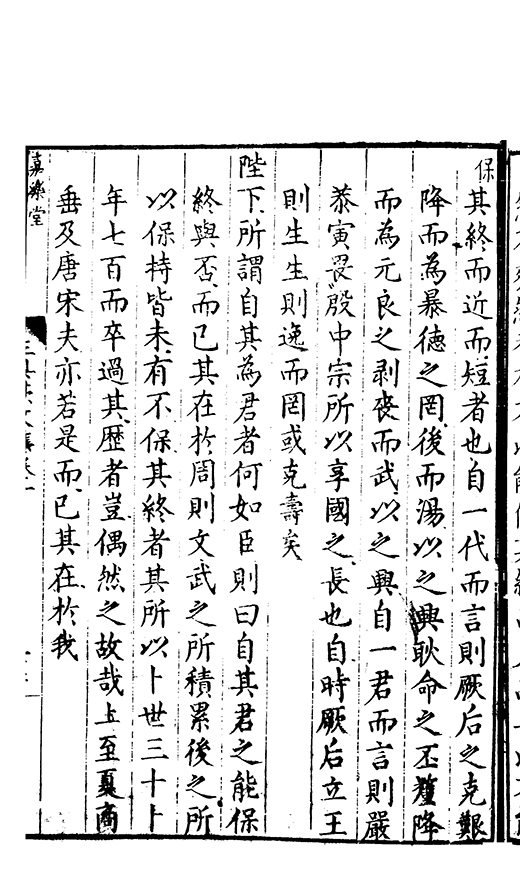 保其終而近而短者也自一代而言則厥后之克艱
降而為暴德之罔後而湯以之興耿命之丕釐降
而為元良之剥喪而武以之興自一君而言則嚴
恭寅畏殷中宗所以享國之長也自時厥后立王
則生生則逸而罔或克壽矣
陛下所謂自其為君者何如臣則曰自其君之能保
終與否而已其在於周則文武之所積累後之所
以保持皆未有不保其終者其所以卜世三十卜
年七百而卒過其歷者豈偶然之故哉上至夏商
垂及唐宋夫亦若是而已其在於我
嘉樂堂